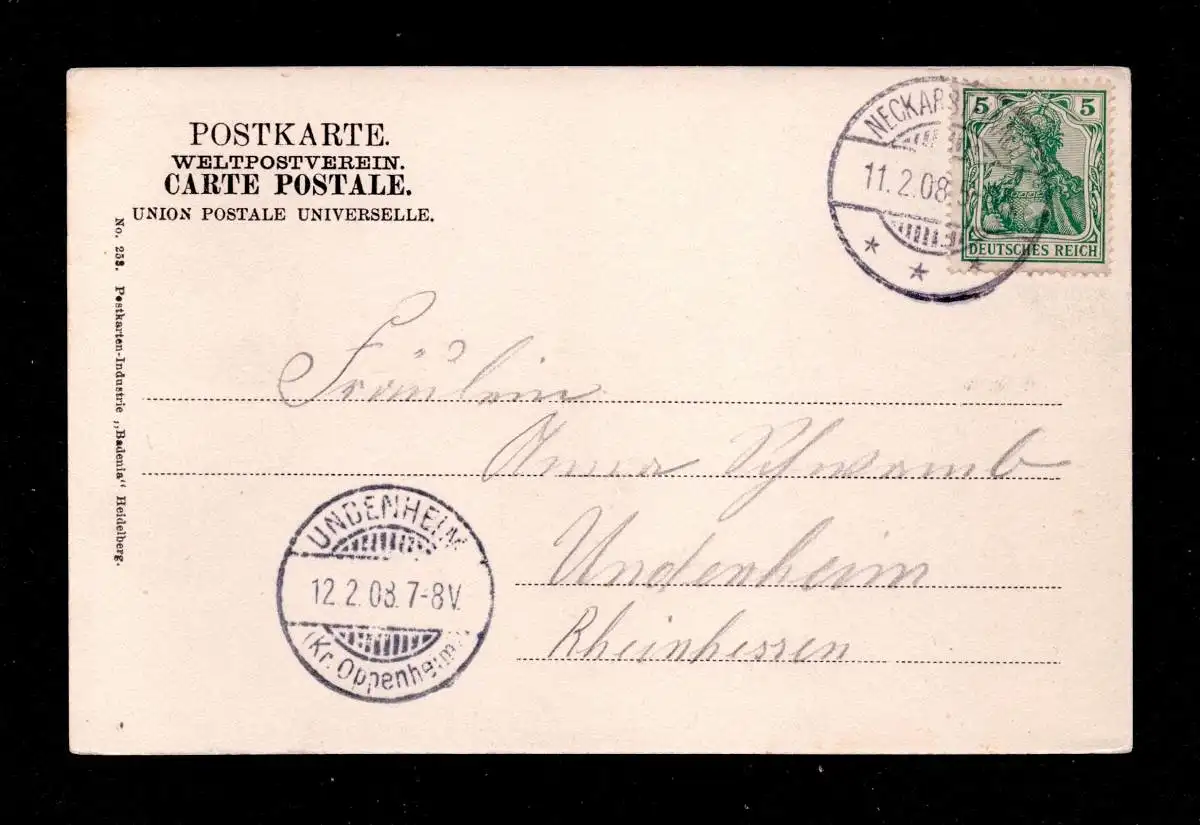 POSTKARTE.
WELTPOSTVEREIN.
CARTE POSTALE.
UNION POSTALE UNIVERSELLE.
No. 258. Postkarten-Industrie „Badenia“ Heidelberg.
11.2.08.
5 5
DEUTSCHES REICH
Fräulein
Anna Schwamb
Undenheim
Rheinhessen
UNDENHEIM
12.2.08.7-8V.
(Kr. Oppenheim)